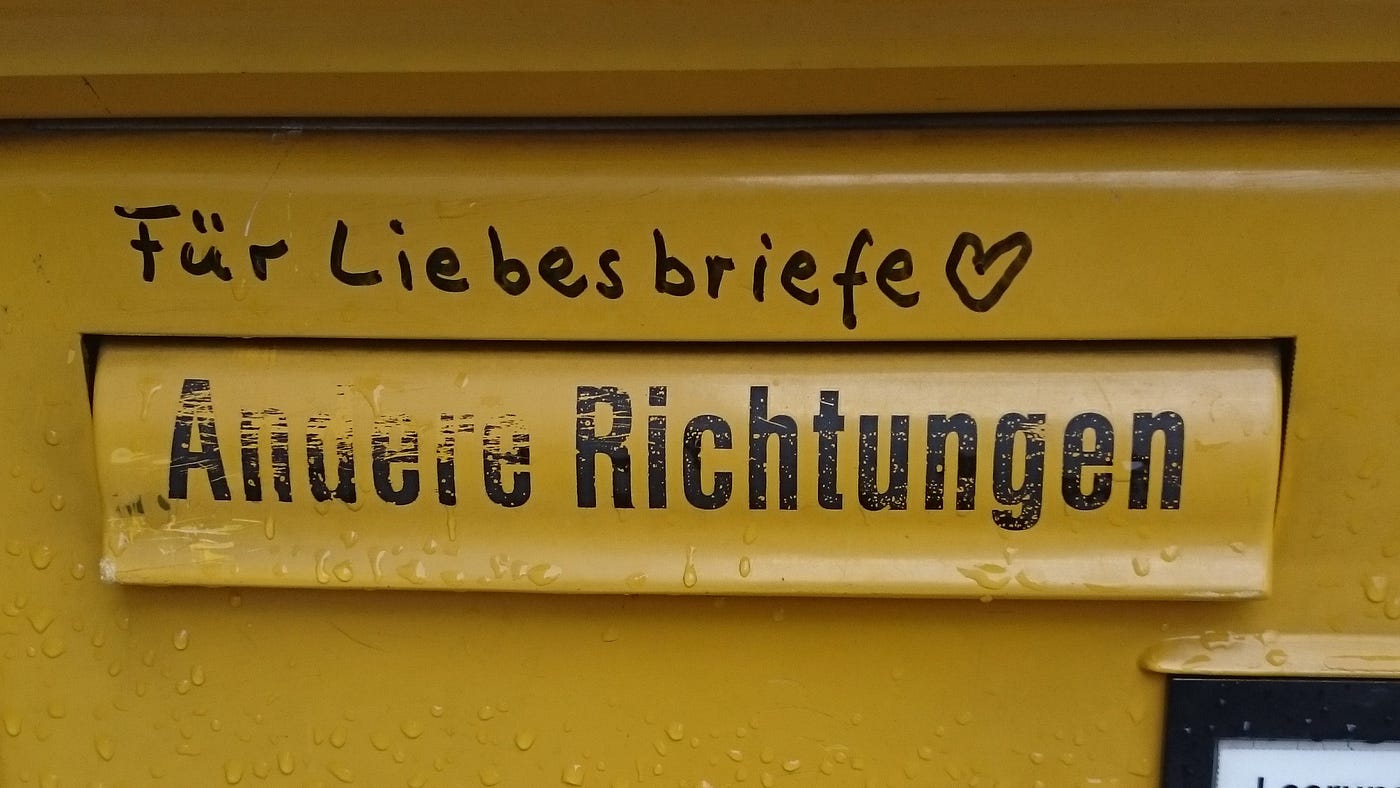 Für Liebesbriefe ♡
Andere Richtungen